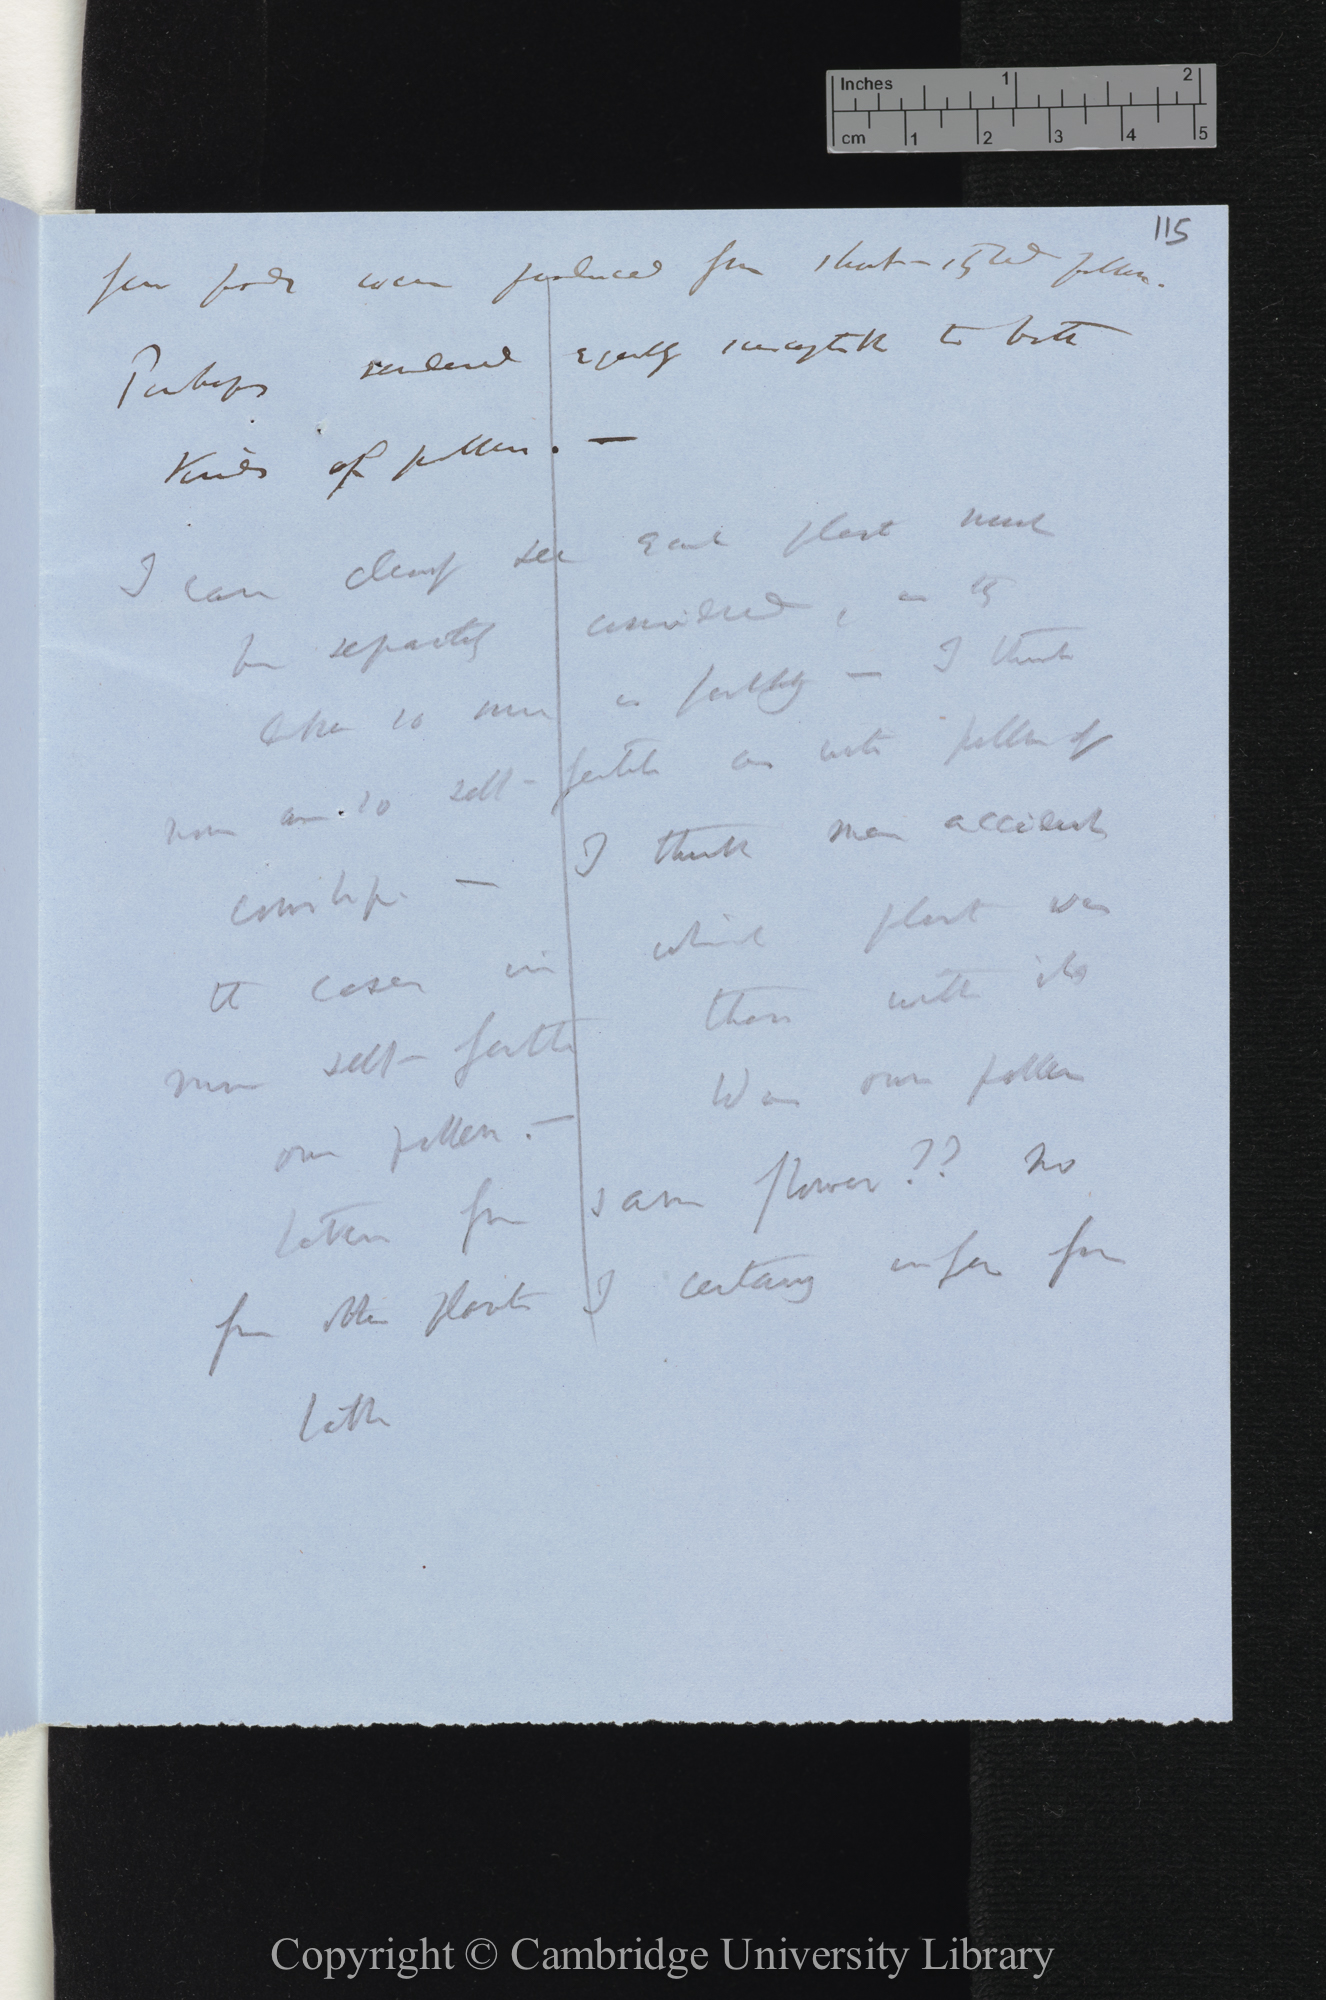 Inches 1 2
cm 1 2 3 4 5
115
few pods were produced from short-styled pollen.
Perhaps rendered equally susceptible to both
Kinds of pollen. —
I can clearly see each plant must
be separately considered, as they
differ so much in fertility — I think
none are so self-fertile as with pollen of
cowslip. — I think mere accident
the cases in which plant was
more self-fertile than with its
own pollen. — Was own pollen
taken from same flower?? no
from other plants I certainly infer from
latter
Copyright © Cambridge University Library